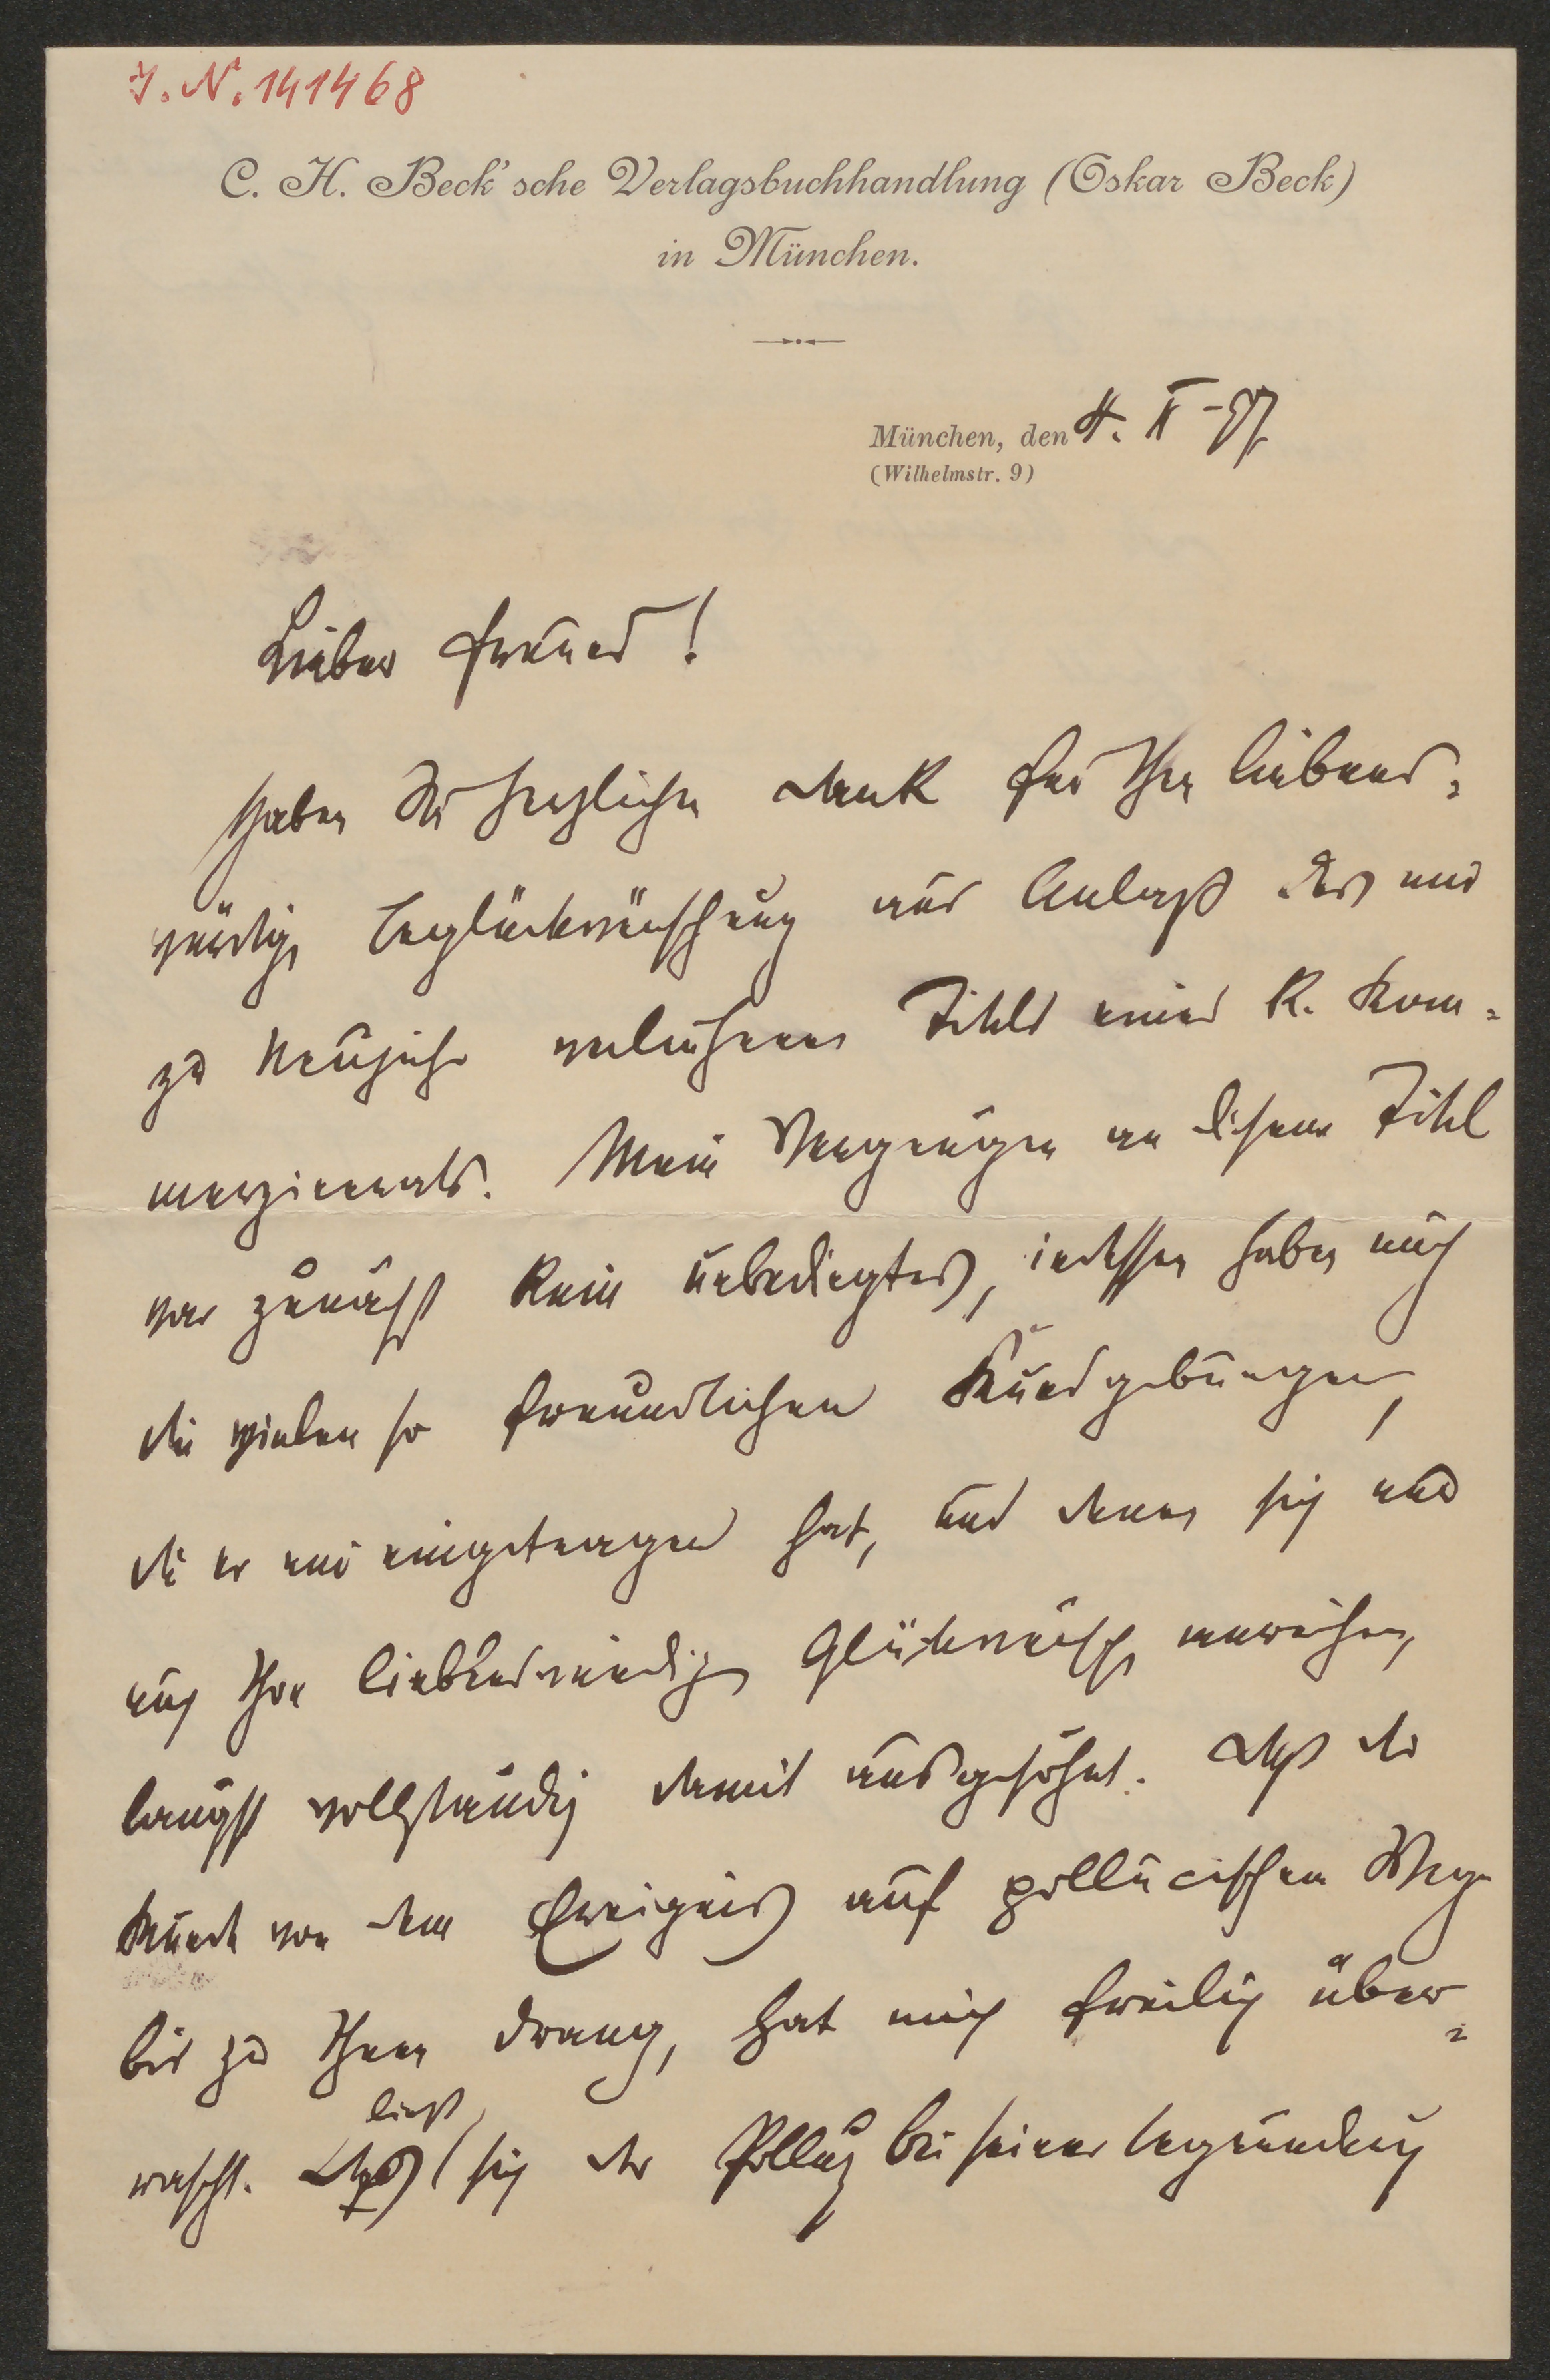 I. N. 141468
C. H. Beck'sche Verlagsbuchhandlung (Oskar Beck)
in München.
München, den 4. II - 97
(Wilhelmstr. 9)
Lieber Freund!
Haben Sie herzlichen Dank für Ihre liebens-
würdige Beglückwünschung aus Anlaß des mir
zu Neujahr verliehenen Titels eines K. Kom-
merzienrats. Mein Vergnügen an diesem Titel
war zunächst kein unbedingtes, indessen haben mich
die vielen so freundlichen Kundgebungen,
die er mir eingetragen hat, und denen sich nun
auch Ihre liebenswürdigen Glückwünsche anreihen,
längst vollständig damit ausgesöhnt. Daß die
Kunde von dem Ereignis auf pollucischem Wege
bis zu Ihnen drang, hat mich freilich über-
rascht. ließ sich der Pollux bei seiner Begründung